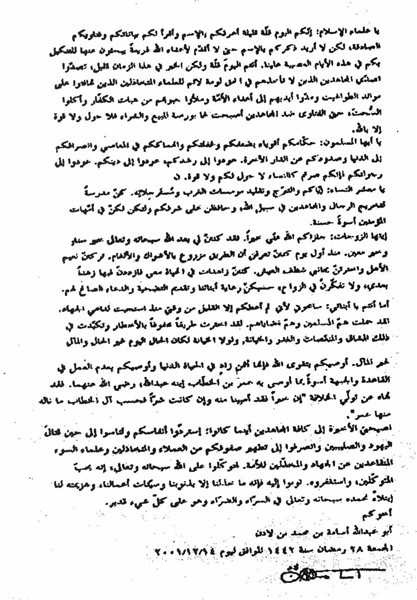 يا علماء الإسلام: إنكم اليوم قلة قليلة أعرفكم بالإسم وأقرأ لكم بياناتكم وفتاويكم
الصادقة، لكن لا أريد ذكركم بالإسم حتى لا أقدم لأعداء الله فريسة يبحثون عنها للتنكيل
بكم في هذه الأيام العصيبة علينا. أنتم اليوم قلة ولكن الخير في هذا الزمان قليل، تصدّوا
تصدّي المجاهدين الذين لا تأخذهم في الحق لومة لائم للعلماء المتخاذلين الذين تهافتوا على
موائد الطواغيت ومدّوا أيديهم إلى أعداء الأمّة وملأوا جيوبهم من هبات الكفّار وأكلوا
السُّحت، حتى الفتاوى ضد المجاهدين أصبحت لها بورصة للبيع والشراء فلا حول ولا قوة
إلا بالله.
يا أيها المسلمون: حكّامكم أقوياء بضعفكم وغفلتكم وانهماككم في المعاصي وانصرافكم
إلى الدنيا وصدودكم عن الدار الآخرة. عودوا إلى رشدكم، عودوا إلى دينكم. عودوا إلى
رجولتكم فإنكم صرتم كالنساء لا حول لكم ولا قوة.
يا معشر النساء: إيّاكم والتبرّج وتقليد مومسات الغرب و بناته. كنّ مدرسة
تخرّجي الرجال والمجاهدين في سبيل الله، وحافظن على شرفكن ولتكن لكنّ في أمّهات
المؤمنين أسوة حسنة.
أيتها الزوجات: جزاكم الله عنّي خيراً. فقد كنتنّ في بعد الله سبحانه وتعالى خير سندٍ
وخير معين. منذ أول يوم كنتن تعرفن أن الطريق مزروع بالأشواك والألغام. تركتن نعيم
الأهل واخترتنّ بجانبي شظف العيش. كنتنّ زاهدات في الحياة معي فازددن فيها زهداً
بعدي، ولا تفكّرن في الزواج، فيكن رعاية أبنائنا وتقديم التضحية والدعاء الصالح لهم.
أما أنتم يا أبنائي: سامحوني لأني لم أعطكم إلا القليل من وقتي منذ استجبت لداعي الجهاد.
لقد حملت همّ المسلمين وهمّ قضاياهم. لقد اخترت طريقاً محفوفاً بالأخطار وتكبّدت في
ذلك المشاق والمنغصات والغدر والخيانة. ولولا الخيانة لكان الحال اليوم غير الحال والمآل
غير المآل. أوصيكم بتقوى الله فإنها أثمن زاد في الحياة الدنيا وأوصيكم بعدم العمل في
القاعدة والجبهة أسوةً بما أوصى به عمر بن الخطّاب إبنه عبدالله، رضي الله عنهما. فقد
نهاه عن تولّي الخلافة "إن خيراً فقد أصبنا منه وإن كانت شرّاً فحسب آل الخطاب ما ناله
منها عمر".
نصيحتي الأخيرة إلى كافة المجاهدين أينما كانوا: إستردّوا أنفاسكم وتناسوا إلى حين قتال
اليهود والصليبيين وانصرفوا إلى تطهير صفوفكم من العملاء والمتخاذلين وعلماء السوء
المتقاعدين عن الجهاد والمخذّلين للأمة. توكّلوا على الله سبحانه وتعالى؛ إنه يحبّ
المتوكّلين، واستغفروه. توبوا إليه فإنه ما خذلنا إلا بذنوبنا وسيّئات أعمالنا، وهزيمته لنا
إبتلاءً نحمده سبحانه وتعالى في السراء والضرّاء وهو على كلّ شيء قدير.
أخوكم
أبو عبدالله أسامة بن محمد بن لادن
الجمعة ٢٨ رمضان سنة ١٤٤٢ الموافق ليوم ٢٠٠١/١٢/١٤